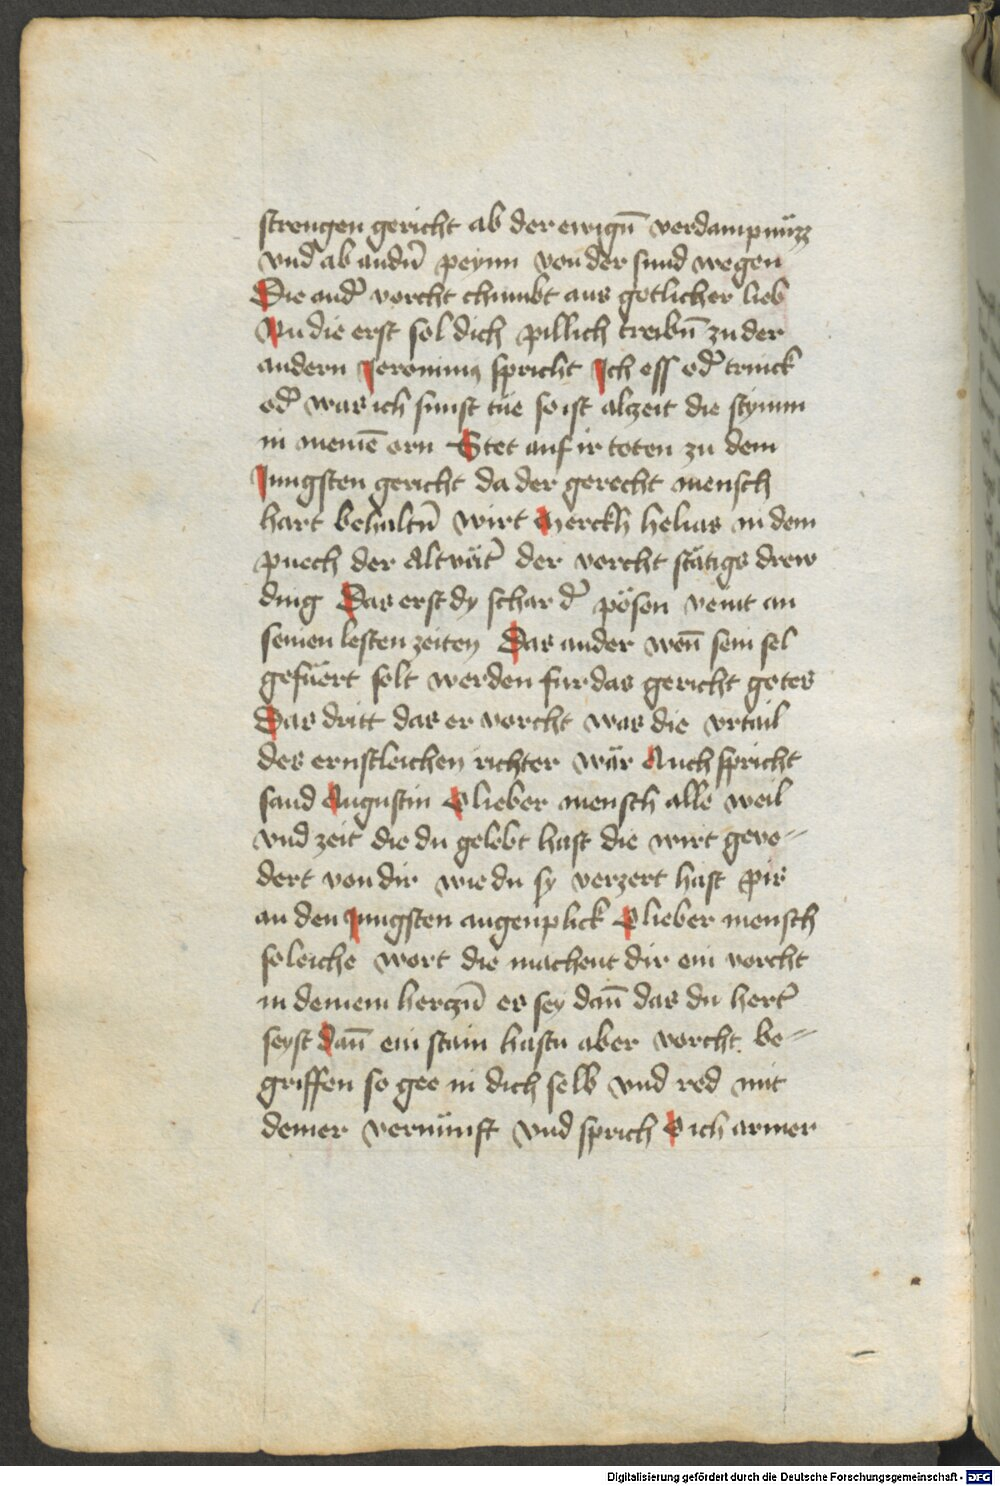 strengen gericht ab der ewigñ verdampnüzz
vnd ab andñ peynn von der sund wegen
Die and̾ vorcht chumbt aus gotlicher lieb
Nu die erst sol dich pillich treibñ zu der
andern Jeronimus spricht Ich ess od̾ trinck
od̾ was ich sunst tüe so ist alzeit die stymm
in meinē orn Stet auf ir toten zu dem
Jungsten gericht da der gerecht mensch
hart behaltñ wirt Merckh helias in dem
puech der Altvät̾ der vorcht stätigs drew
ding Das erst dy schar d̾ pösen veint an
seinen lesten zeiten Das ander wen̄ sein sel
gefüert solt werden fur das gericht gotes
Das dritt das er vorcht was die vrtail
des ernstleichen richter wär Auch spricht
sand Augustin O lieber mensch alle weil
vnd zeit die du gelebt hast die wirt gevo-
dert von dir wie du sy verzert hast pis
an den Jungsten augenplick O lieber mensch
soleiche wort die machent dir ein vorcht
in deinem herczñ es sey dan̄ das du hert̾
seyst dan̄ ein stain hastu aber vorcht be-
griffen so gee in dich selb vnd red mit
deiner vernünft vnd sprich O ich armer
Digitalisierung gefördert durch die Deutsche Forschungsgemeinschaft - DFG